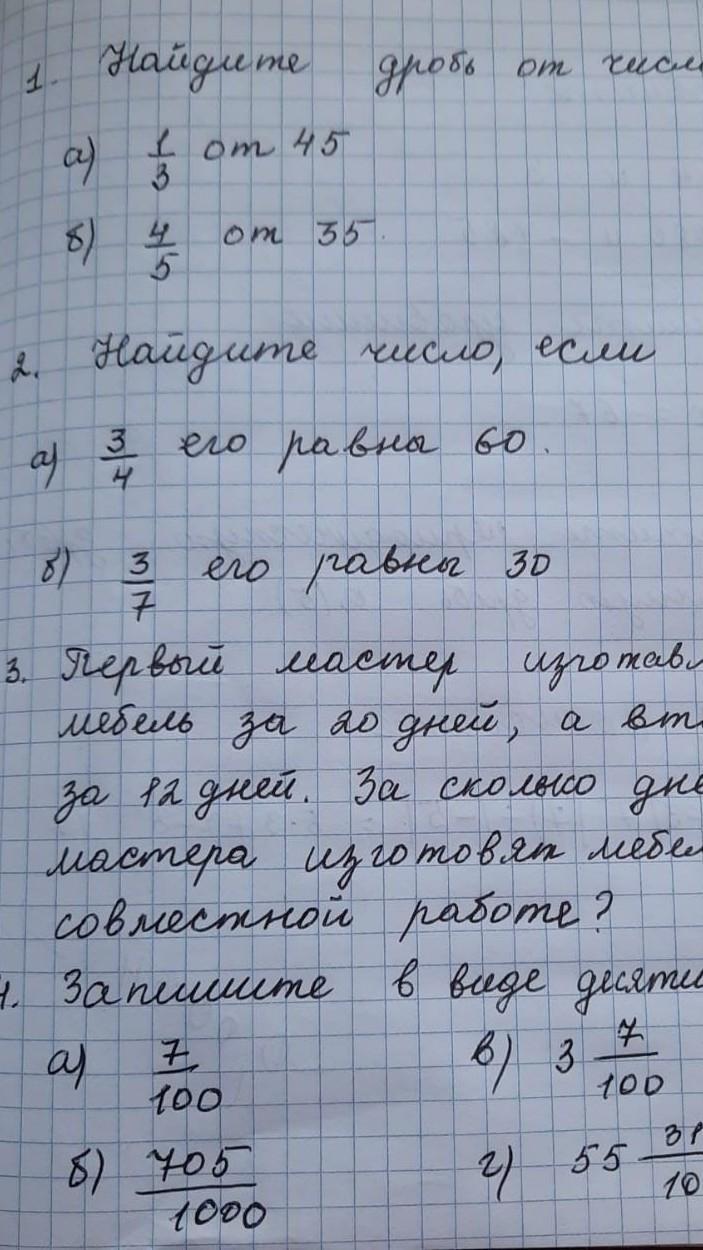 1. Найдите дробь от числ
а) 1/3 от 45
б) 4/5 от 35.
2. Найдите число, если
а) 3/4 его равны 60.
б) 3/7 его равны 30
3. Первый мастер изготавл
мебель за 20 дней, а вт
за 12 дней. За сколько дне
мастера изготовят мебел
совместной работе?
4. Запишите в виде десяти
а) 7/100 в) 3 7/100
б) 705/1000 г) 55